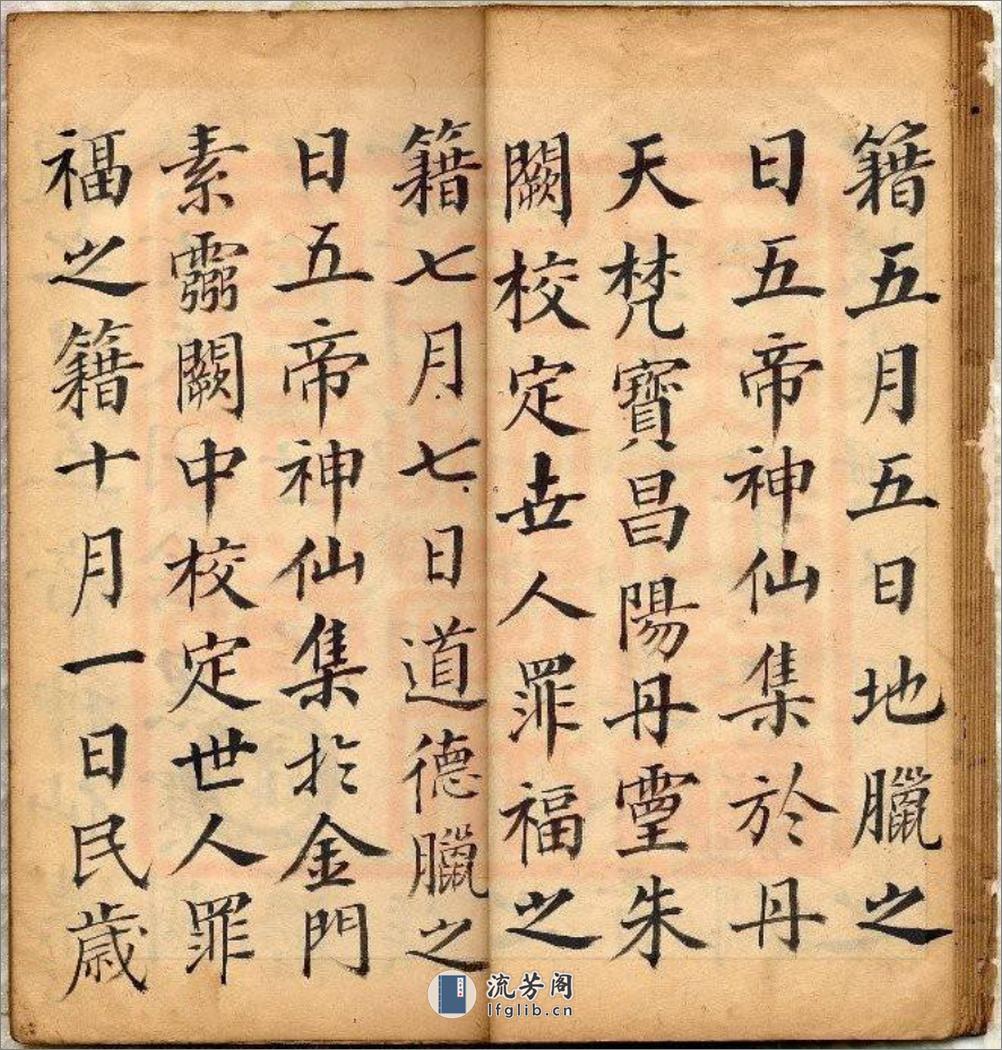 籍五月五日地臘之
日五帝神仙集於丹
天梵寶昌陽丹靈朱
闕校定世人罪福之
籍七月七日道德臘之
日五帝神仙集於金門
素靈闕中校定世人罪
福之籍十月一日民歲
流芳阁
lfglib.cn